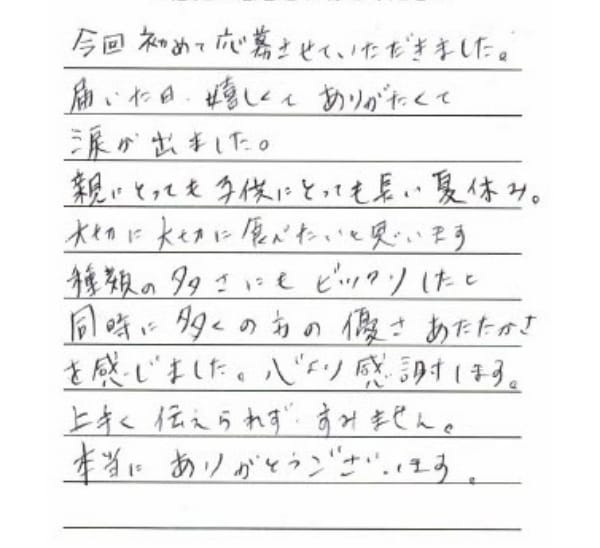 今回 初めて 応募させていただきました。
届いた日、嬉しくて ありがたくて
涙が 出ました。
親にとっても 子供にとっても 長い 夏休み。
大切に 大切に 食べたいと思います
種類の 多さにも ビックリしたと
同時に 多くの方の 優さ あたたかさ
を感じました。心より 感謝します。
上手く 伝えられず すみません。
本当に ありがとうございます。